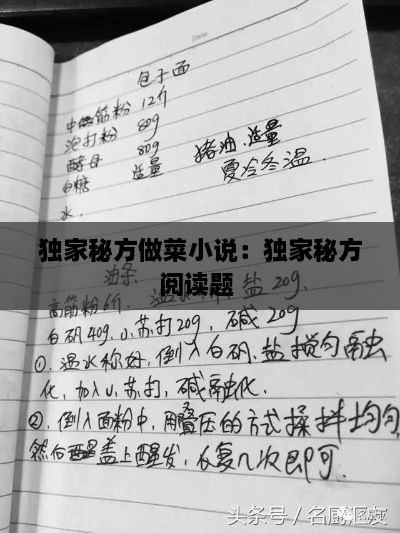 Date.
包子面
中筋粉 12斤
泡打粉 80g
酵母 80g
白糖 适量
猪油.适量
水.
夏冷冬温.
独家秘方做菜小说：独家秘方
阅读题
油条
高筋粉6斤. 温水 盐 20g.
白矾40g.小苏打20g，碱20g
①.温水称好，倒入白矾.盐搅匀融
化，加入小苏打，碱融化.
②.倒入面粉中，用叠压的方式搅拌均匀
然后盖上醒发，反复几次即可.
头条号／名厨